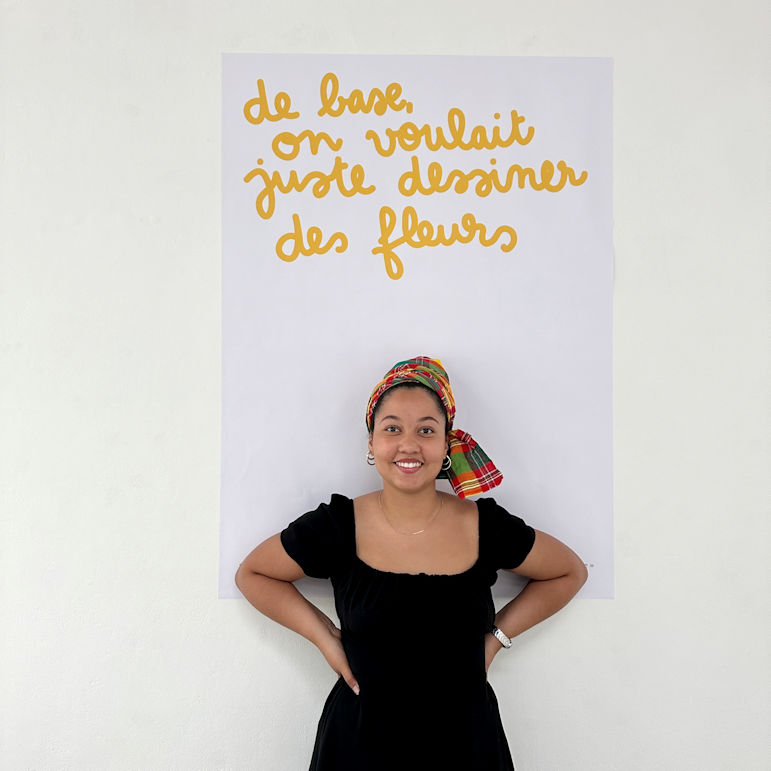 de base,
on voulait
juste dessiner
des fleurs